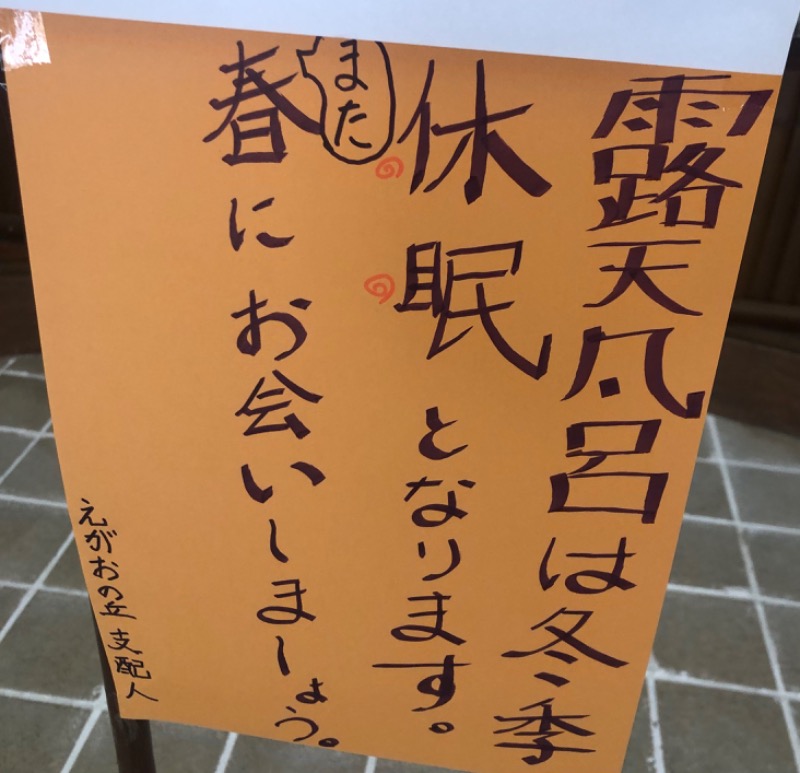 露天風呂は冬季
休眠となります。
また
春にお会いしましょう。
えがおの丘 支配人